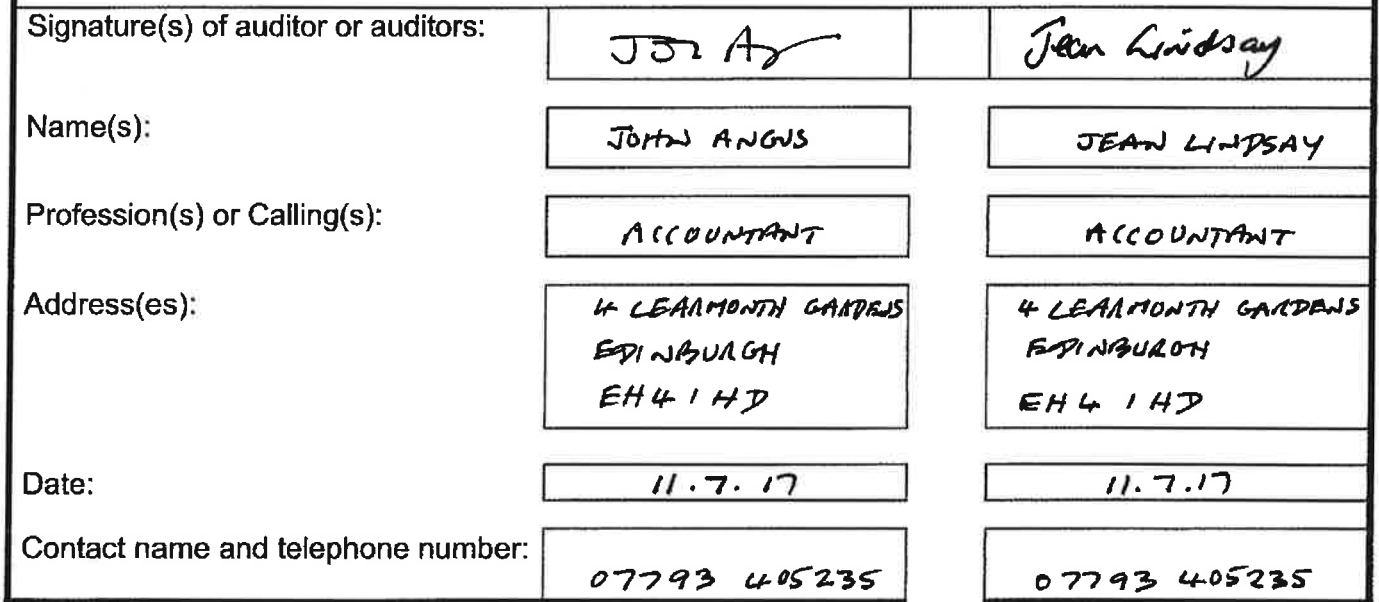 Signature(s) of auditor or auditors: Jean Lindsay
Name(s): JOHN ANGUS JEAN LINDSAY
Profession(s) or Calling(s): ACCOUNTANT ACCOUNTANT
Address(es): 4 LEARMONTH GARDENS 4 LEARMONTH GARDENS
EDINBURGH EDINBURGH
EH4 1HD EH4 1HD
Date: 11.7.17 11.7.17
Contact name and telephone number: 07793 405235 07793 405235